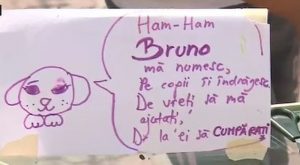 Ham-Ham
Bruno
mă numesc,
Pe copii îi îndrăgesc.
De vreți să mă
ajutați,
De la'ei să CUMPĂRAȚI